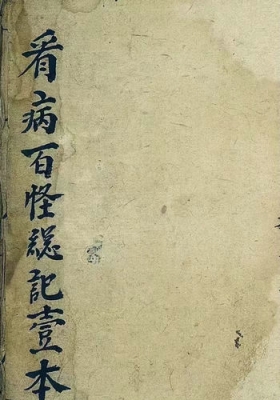 看病百怪總記壹本